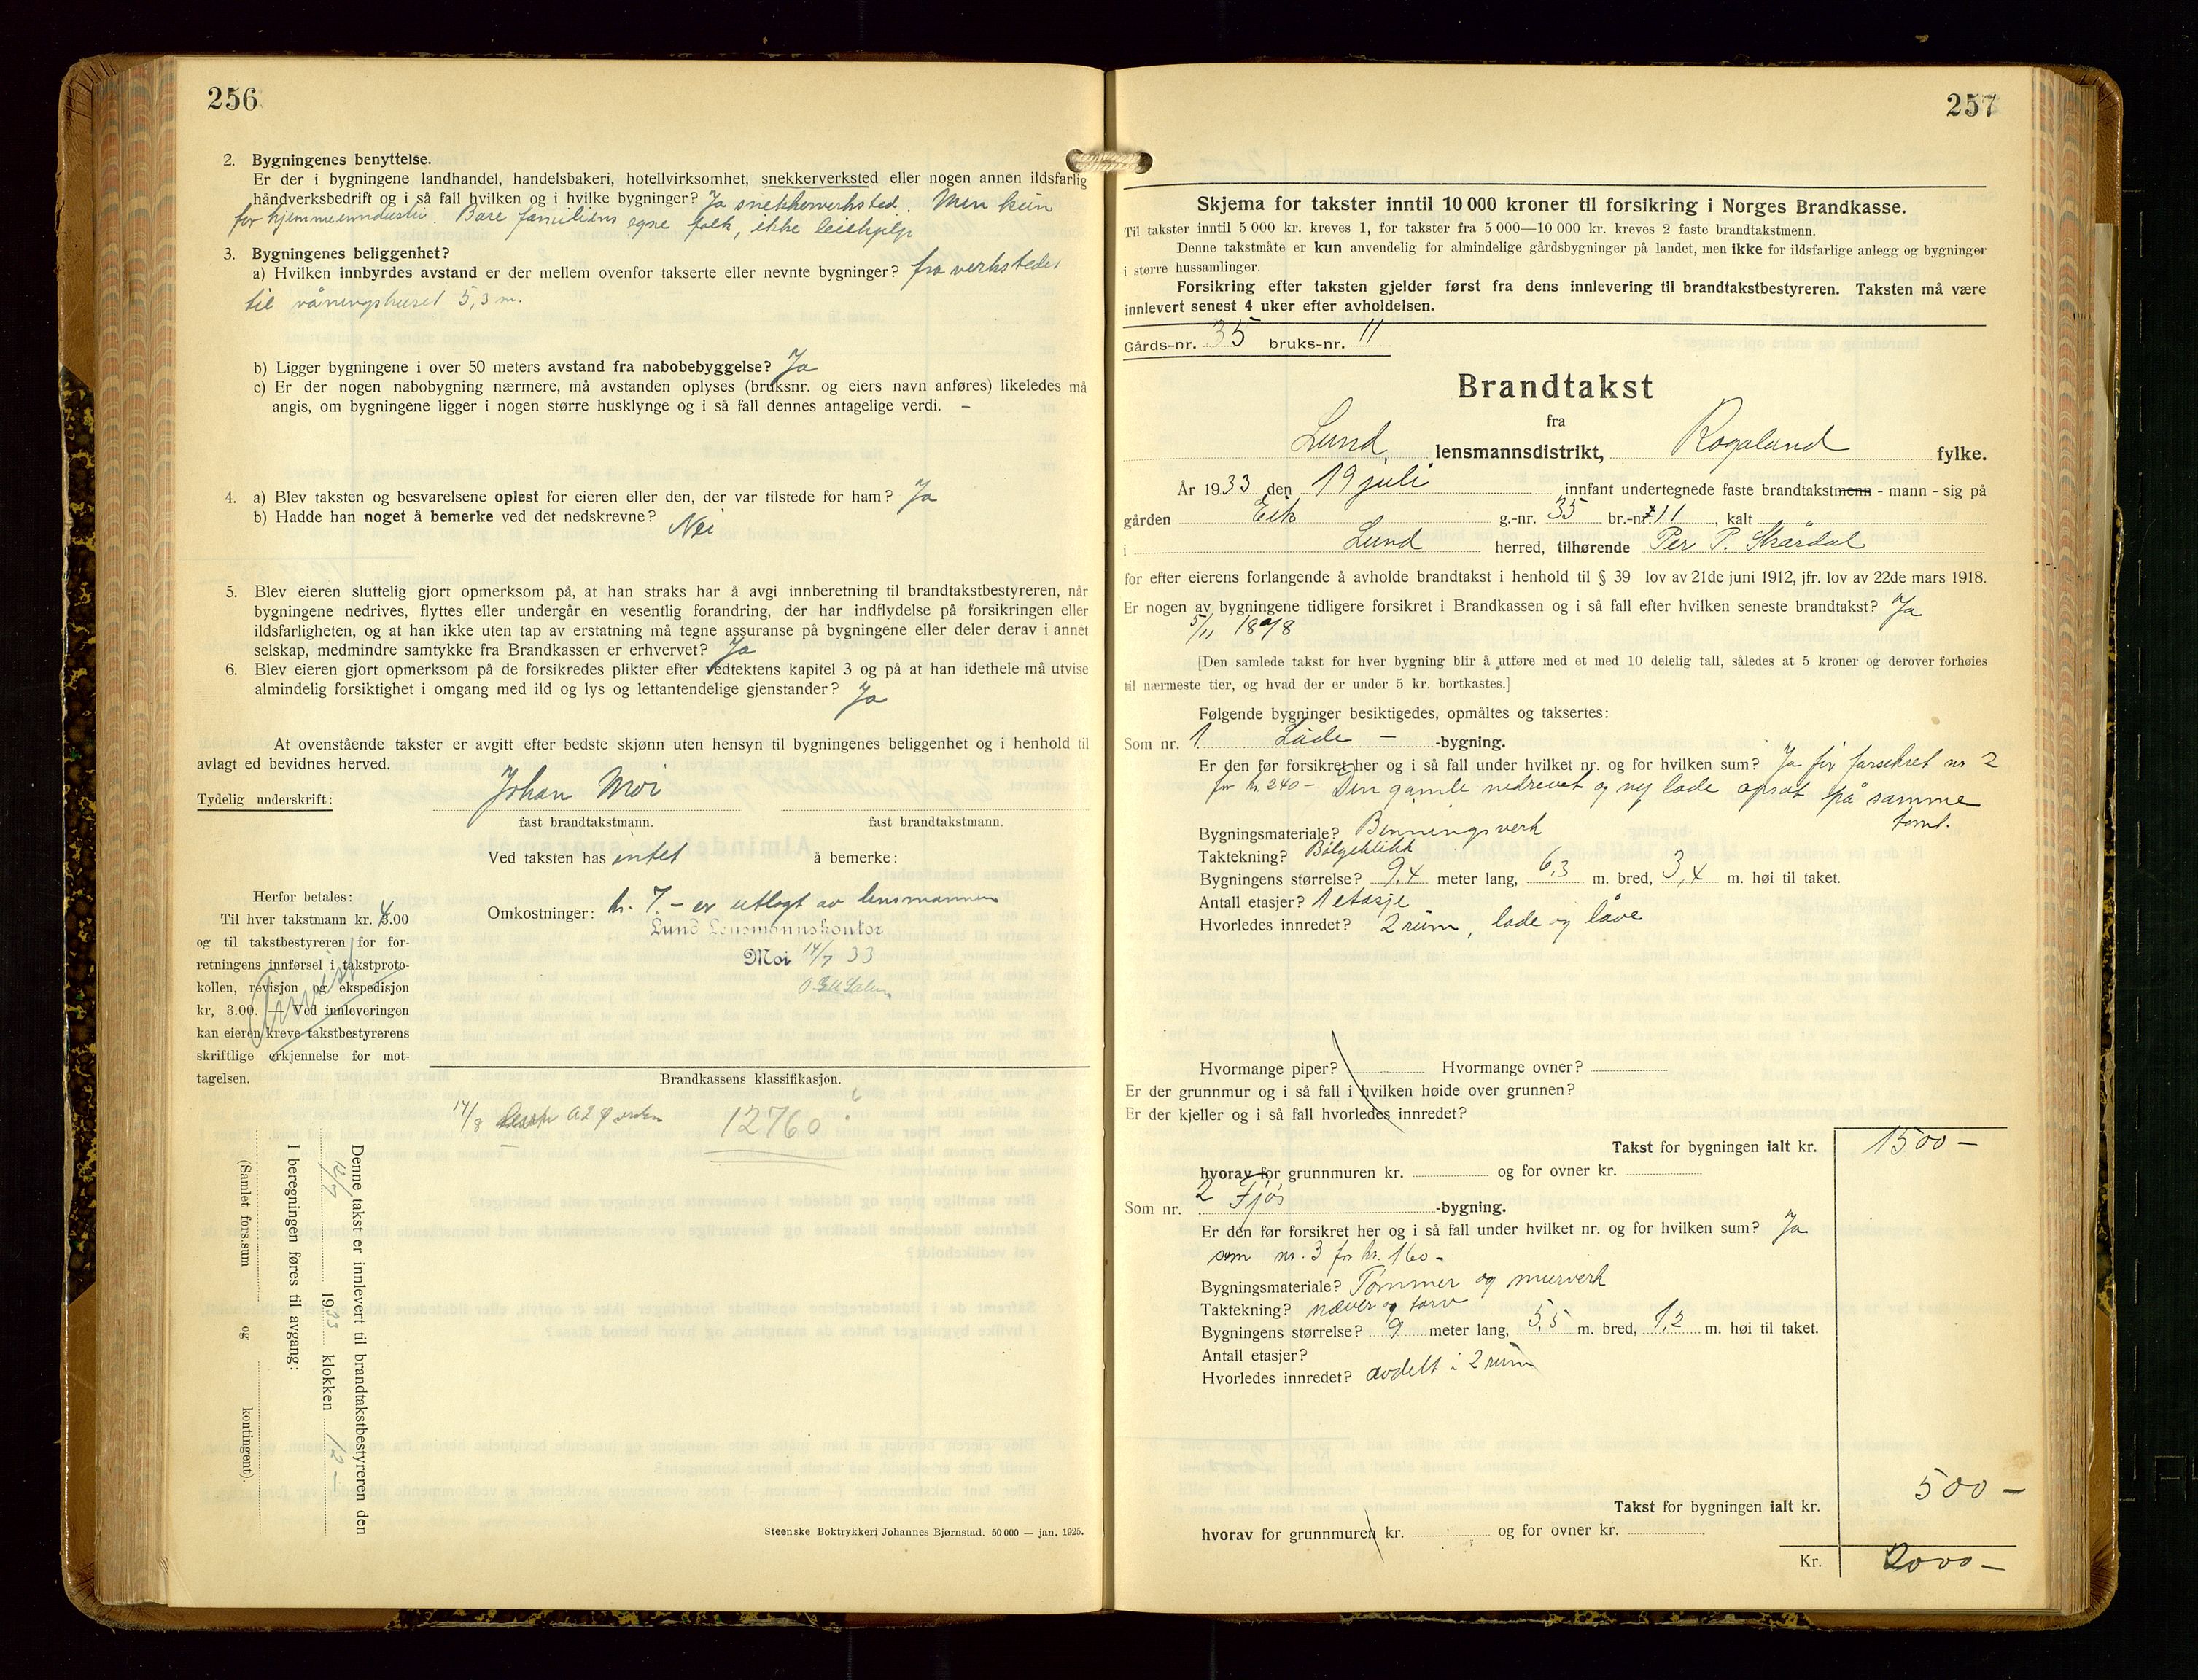 256
2. Bygningenes benyttelse.
Er der i bygningene landhandel, handelsbakeri, hotellvirksomhet, snekkerverksted eller nogen annen ildsfarlig
håndverksbedrift og i så fall hvilken og i hvilke bygninger? Ja snekkerverksted. Men kun
for hjemmeinndustri. Bare familiens egne folk, ikke leiehjelp
3. Bygningenes beliggenhet?
a) Hvilken innbyrdes avstand er der mellem ovenfor takserte eller nevnte bygninger? fra verkstedet
til våningshuset 5,3 m.
b) Ligger bygningene i over 50 meters avstand fra nabobebyggelse? Ja
c) Er der nogen nabobygning nærmere, må avstanden oplyses (bruksnr. og eiers navn anføres) likeledes må
angis, om bygningene ligger i nogen større husklynge og i så fall dennes antagelige verdi. –
4. a) Blev taksten og besvarelsene oplest for eieren eller den, der var tilstede for ham? Ja
b) Hadde han noget å bemerke ved det nedskrevne? Nei
5. Blev eieren sluttelig gjort opmerksom på, at han straks har å avgi innberetning til brandtakstbestyreren, når
bygningene nedrives, flyttes eller undergår en vesentlig forandring, der har indflydelse på forsikringen eller
ildsfarligheten, og at han ikke uten tap av erstatning må tegne assuranse på bygningene eller deler derav i annet
selskap, medmindre samtykke fra Brandkassen er erhvervet? Ja
6. Blev eieren gjort opmerksom på de forsikredes plikter efter vedtektens kapitel 3 og på at han idethele må utvise
almindelig forsiktighet i omgang med ild og lys og lettantendelige gjenstander? Ja
At ovenstående takster er avgitt efter bedste skjønn uten hensyn til bygningenes beliggenhet og i henhold til
avlagt ed bevidnes herved.
Tydelig underskrift: Johan Moi
fast brandtakstmann. fast brandtakstmann.
Ved taksten has intet å bemerke:
Omkostninger: kr. 7.- er utlagt av lensmannen
Lund Lensmannskontor
Moi 14/7 33
Herfor betales:
Til hver takstmann kr. 4.00
og til takstbestyreren for for-
retningens innførsel i takstproto-
kollen, revisjon og ekspedisjon
kr, 3.00. — Ved innleveringen
kan eieren kreve takstbestyrerens
skriftlige erkjennelse for mot-
tagelsen.
Brandkassens klassifikasjon.
14/8
12760
Denne takst er innlevert til brandtakstbestyreren den
12/7 1933 klokken 12 –
I beregningen føres til avgang:
(Samlet fors.sum og kontingent).
Steenske Boktrykkeri Johannes Bjørnstad. 50 000 — jan. 1925.
257
Skjema for takster inntil 10 000 kroner til forsikring i Norges Brandkasse.
Til takster inntil 5 000 kr. kreves 1, for takster fra 5 000—10 000 kr. kreves 2 faste brandtakstmenn.
Denne takstmåte er kun anvendelig for almindelige gårdsbygninger på landet, men ikke for ildsfarlige anlegg og bygninger
i større hussamlinger.
Forsikring efter taksten gjelder først fra dens innlevering til brandtakstbestyreren. Taksten må være
innlevert senest 4 uker efter avholdelsen.
Gårds-nr. 35 bruks-nr. 11
Brandtakst
fra
Lund lensmannsdistrikt, Rogaland fylke.
År 1933 den 19 juli innfant undertegnede faste brandtakstmenn - mann - sig på
gården Eik g.-nr. 35 br.-nr. 11, kalt
i Lund herred, tilhørende Per P. Skårdal
for efter eierens forlangende å avholde brandtakst i henhold til § 39 lov av 21de juni 1912, jfr. lov av 22de mars 1918.
Er nogen av bygningene tidligere forsikret i Brandkassen og i så fall efter hvilken seneste brandtakst? Ja
5/11 1898
[Den samlede takst for hver bygning blir å utføre med et med 10 delelig tall, således at 5 kroner og derover forhøies
til nærmeste tier, og hvad der er under 5 kr. bortkastes.]
Følgende bygninger besiktigedes, opmåltes og taksertes:
Som nr. 1 Lade – -bygning.
Er den før forsikret her og i så fall under hvilket nr. og for hvilken sum? Ja før forsekret nr 2
for kr 240 – Den gamle nedrevet og ny lade opsat på samme
tomt.
Bygningsmateriale? Benningsverk
Taktekning? Bølgeblikk
Bygningens størrelse? 9,4 meter lang, 6,3 m. bred, 3,4 m. høi til taket.
Antall etasjer? 1 etasje
Hvorledes innredet? 2 rum, lade og låve
Hvormange piper? Hvormange ovner?
Er der grunnmur og i så fall i hvilken høide over grunnen?
Er der kjeller og i så fall hvorledes innredet?
Takst for bygningen ialt kr. 1500 –
hvorav for grunnmuren kr. og for ovner kr.
Som nr. 2 Fjøs -bygning.
Er den før forsikret her og i så fall under hvilket nr. og for hvilken sum? Ja
som nr. 3 for kr. 160 –
Bygningsmateriale? Tømmer og murverk
Taktekning? næver og torv
Bygningens størrelse? 9 meter lang, 5,5 m. bred, 1,2 m. høi til taket.
Antall etasjer?
Hvorledes innredet? avdelt i 2 rum
Takst for bygningen ialt kr. 500 –
hvorav for grunnmuren kr. og for ovner kr.
Kr. 2000 –